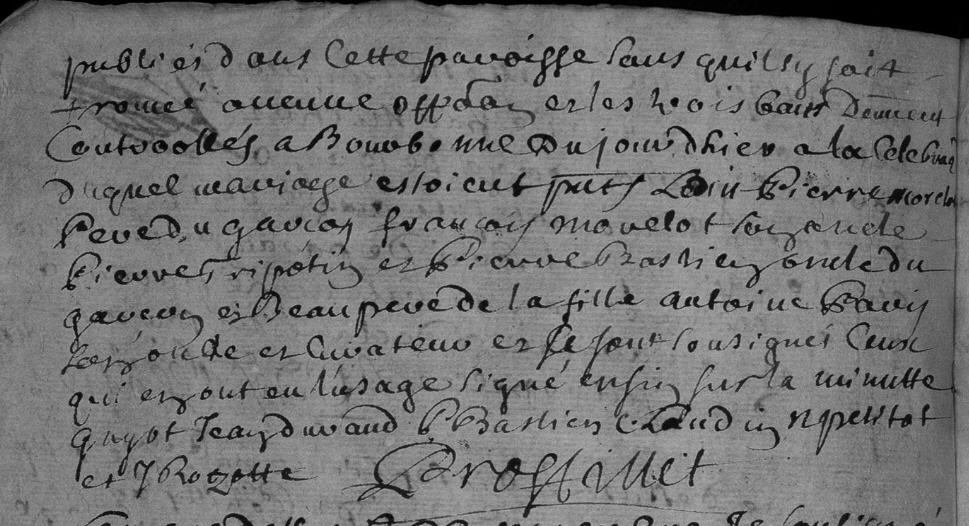 publiés dans Cette paroisse Sans quil sy soit
trouvé aucune opp͞on et les trois bans Deument
Controollés a Bourbonne Dujourdhier a la Celebra͞
duquel mariage estoient p͞nts Pierre morelot
Pere du garcon françois morelot son oncle
Pierre Tripotin et Pierre Bastien oncle du
garcon et Beaupere de la fille antoine Paris
son oncle et Curateur et se sont sousignés Ceux
qui en ont eu lusage Signé ensin sur la minutte
guyot Jean durand P Bastien Claudin N petitot
et J Rozotte